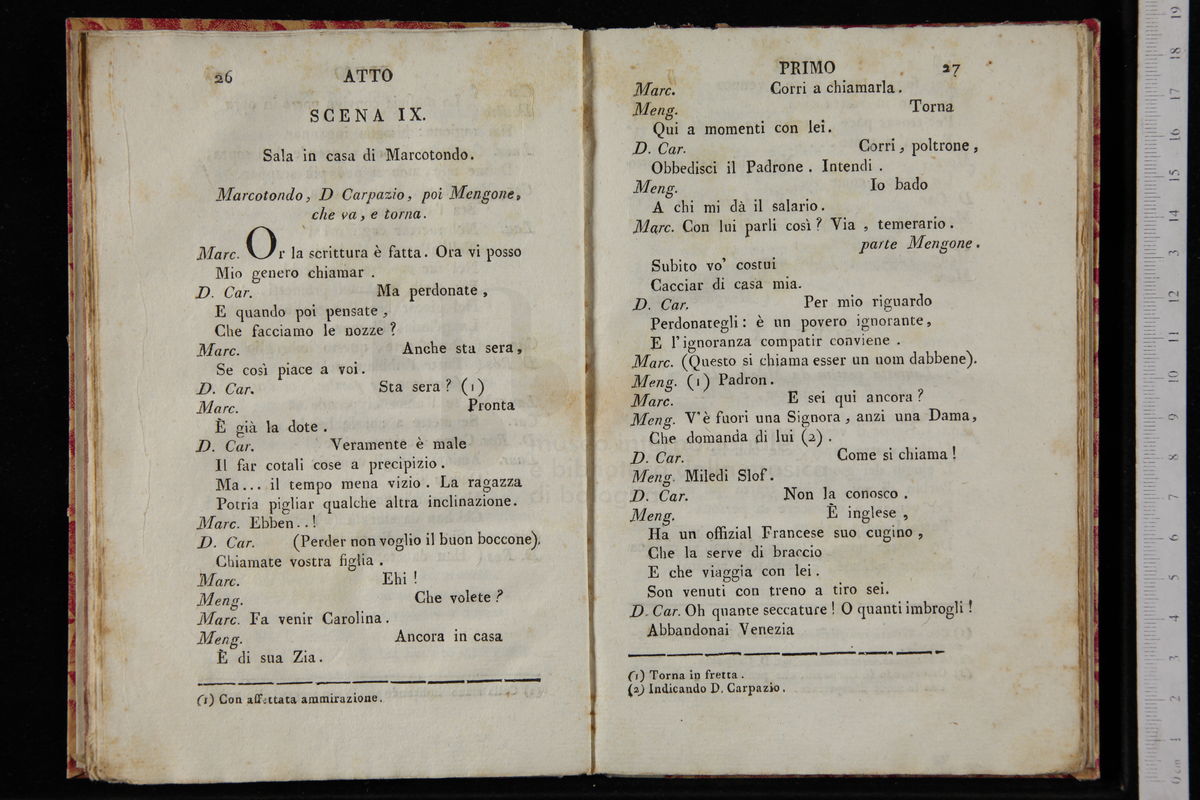 26 ATTO
SCENA IX.
Sala in casa di Marcotondo.
Marcotondo, D Carpazio, poi Mengone,
che va, e torna.
Marc. Or la scrittura è fatta. Ora vi posso
Mio genero chiamar .
D. Car. Ma perdonate ,
E quando poi pensate ,
Che facciamo le nozze ?
Marc. Anche sta sera,
Se così piace a voi.
D. Car. Sta sera ? (1)
Marc. Pronta
È già la dote .
D. Car. Veramente è male
Il far cotali cose a precipizio .
Ma... il tempo mena vizio . La ragazza
Potria pigliar qualche altra inclinazione.
Marc. Ebben..!
D. Car. (Perder non voglio il buon boccone).
Chiamate vostra figlia .
Marc. Ehi !
Meng. Che volete ?
Marc. Fa venir Carolina .
Meng. Ancora in casa
È di sua Zia .
(1) Con affettata ammirazione.
PRIMO 27
Marc. Corri a chiamarla .
Meng. Torna
Qui a momenti con lei.
D. Car. Corri, poltrone ,
Obbedisci il Padrone . Intendi .
Meng. Io bado
A chi mi dà il salario.
Marc. Con lui parli così ? Via , temerario .
parte Mengone .
Subito vo' costui
Cacciar di casa mia.
D. Car. Per mio riguardo
Perdonategli : è un povero ignorante,
E l'ignoranza compatir conviene .
Marc. (Questo si chiama esser un uom dabbene).
Meng. (1) Padron .
Marc. E sei qui ancora ?
Meng. V'è fuori una Signora , anzi una Dama,
Che domanda di lui (2) .
D. Car. Come si chiama !
Meng. Miledi Slof .
D. Car. Non la conosco .
Meng. È inglese ,
Ha un offizial Francese suo cugino ,
Che la serve di braccio
E che viaggia con lei .
Son venuti con treno a tiro sei.
D. Car. Oh quante seccature ! O quanti imbrogli !
Abbandonai Venezia
(1) Torna in fretta .
(2) Indicando D. Carpazio.